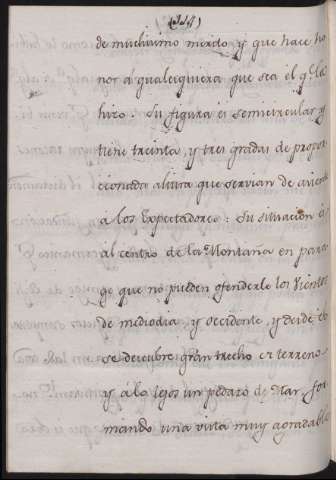 de muchisimo merito, y que hace ho-
nor a qualesquiera que sea el qe. la
hizo. Su figura es semicircular y
tiene treinta, y tres gradas de propor-
cionada altura que servian de asiento
a los Expectadores: Su situacion es
al centro de la Montaña en para-
ge que no pueden ofenderle los Vientos
de mediodia, y occidente, y desde el
se descubre gran trecho de terreno
y a lo lejos un pedazo de Mar, for-
mando una vista muy agradable